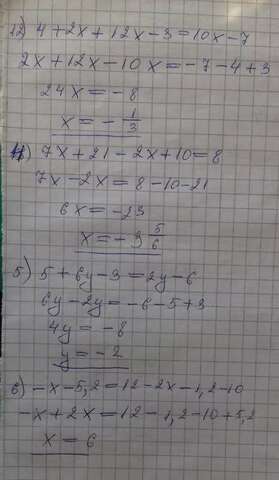 12) 4 + 2x + 12x - 3 = 10x - 7
2x + 12x - 10x = -7 - 4 + 3
24x = -8
x = - 1/3
4) 7x + 21 - 2x + 10 = 8
7x - 2x = 8 - 10 - 21
6x = -23
x = -3 5/6
5) 5 + 6y - 3 = 2y - 6
6y - 2y = -6 - 5 + 3
4y = -8
y = -2
6) -x - 5,2 = 12 - 2x - 1,2 - 10
-x + 2x = 12 - 1,2 - 10 + 5,2
x = 6